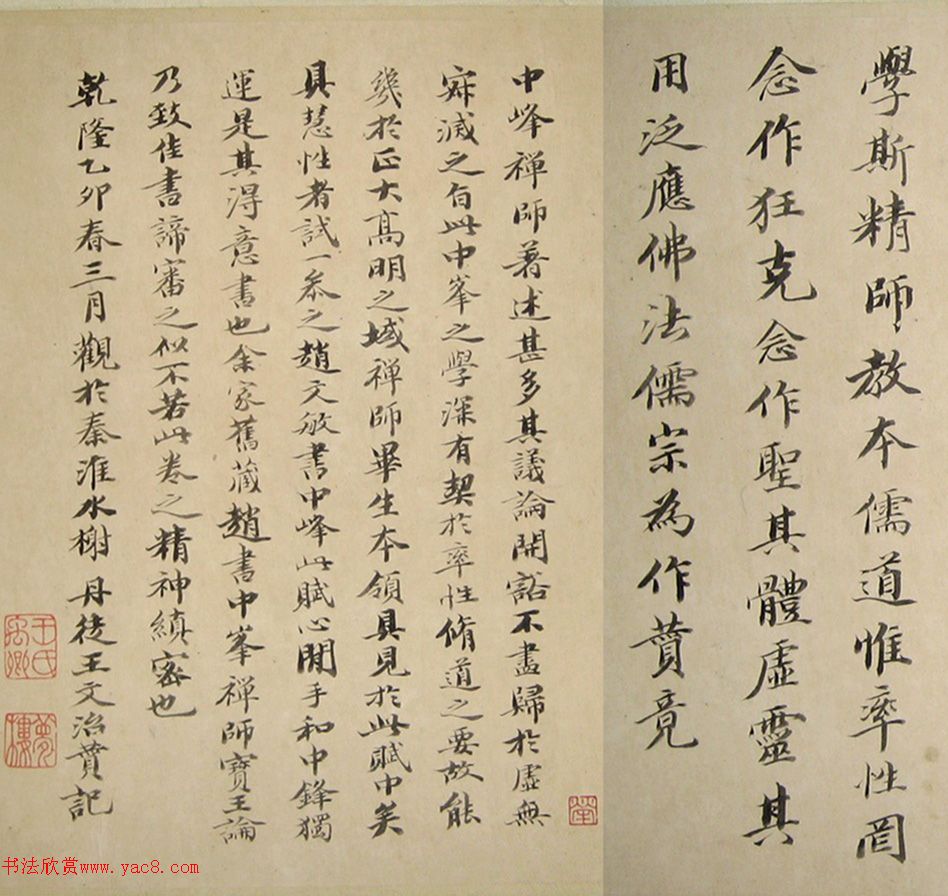 學斯精師教本儒道惟率性罔
念作狂克念作聖其體虛靈其
用泛應佛法儒宗為作贊竟
中峰禅師著述甚多其議論開豁不盡歸於虛無
寂滅之旨此中峯之學深有契於率性脩道之要故能
幾於正大髙明之域禅師畢生本領具見於此賦中矣
具慧性者試一叅之趙文敏書中峰此賦心閒手和中鋒獨
運是其得意書也余家舊藏趙書中峯禅師寶王論
乃致佳書諦審之似不若此卷之精神縝密也
乾隆乙卯春三月觀於秦淮水榭丹徒王文治贊記
王氏禹卿
夢樓
书法欣赏www.yac8.com